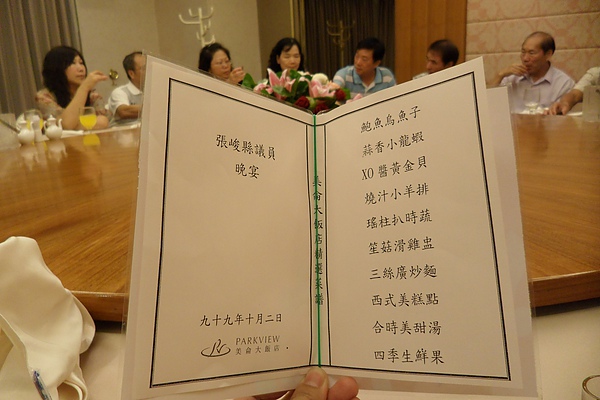 張峻縣議員
晚宴
九十九年十月二日
PARKVIEW
美侖大飯店
美侖大飯店精選菜譜
鮑魚烏魚子
蒜香小龍蝦
XO醬黃金貝
燒汁小羊排
瑤柱扒時蔬
笙菇滑雞盅
三絲廣炒麵
西式美糕點
合時美甜湯
四季生鮮果